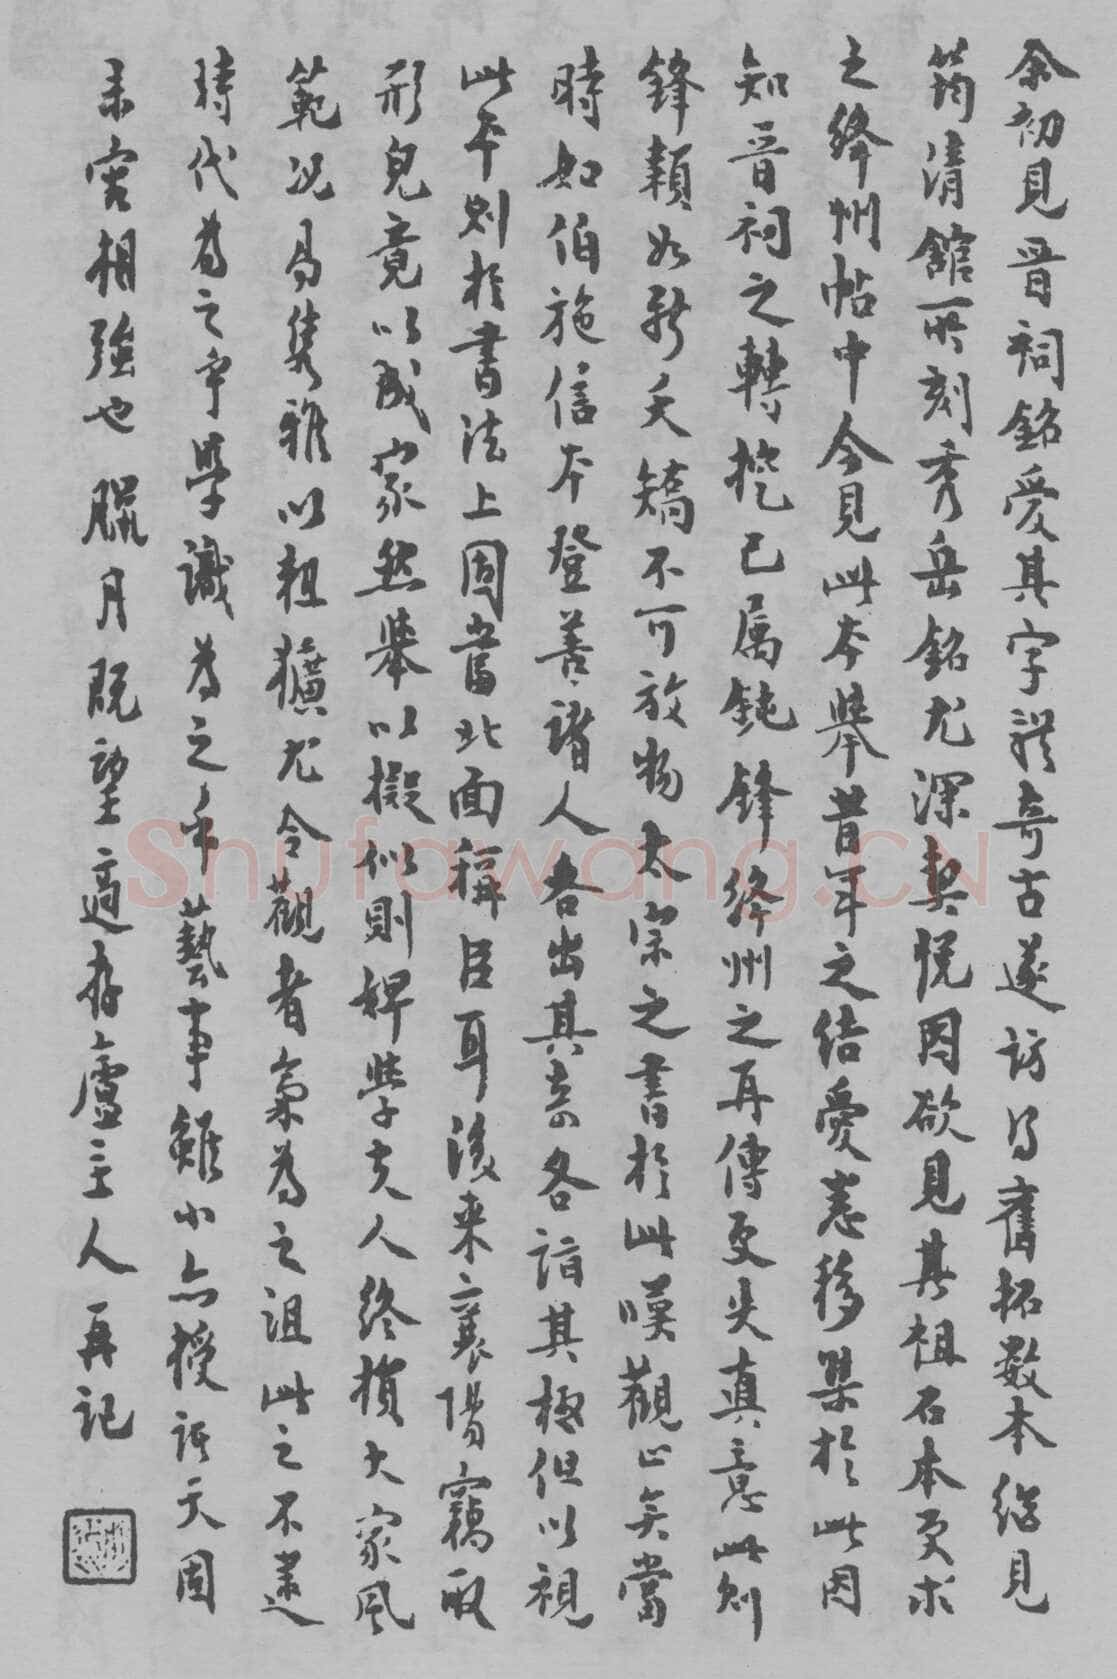 余初見晉祠銘愛其字體奇古遂訪得舊拓數本繼見
筠清館所刻秀岳銘尤深契悅因欲見其祖石本更求
之絳州帖中今見此本舉昔年之結愛悉移集於此因
知晉祠之轉捩已屬鈍鋒絳州之再傳更失真意此則
鋒穎如新夭矯不可放物太宗之書於此嘆觀止矣當
時如伯施信本登善諸人各出其奇各詣其極但以視
此本則於書法上固當北面稱臣耳後來襄陽竊取
形皃竟以成家然舉以擬似則婢學夫人終損大家風
範況易雋雅以粗獷尤令觀者氣為之沮此之不逮
時代為之乎學識為之乎藝事雖小亦授諸天固
未容相強也臘月既望適存廬主人再記
Shufawang.CN